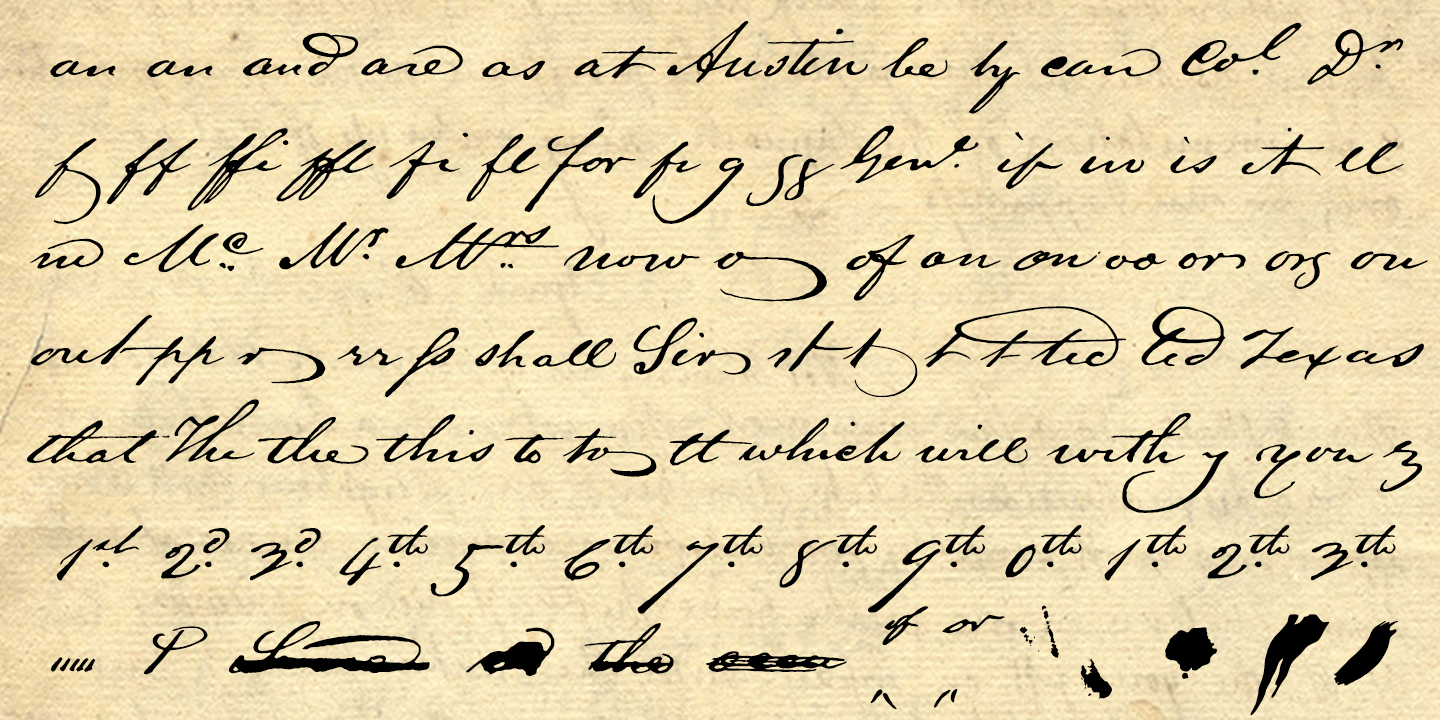 an an and are as at Austin be by can Col. Dr.
f ff ffi ffl fi fl for fr g gg Genl. if in is it ll
m Mc. Mr. Mrs. now o of on on oo or org ou
out pp r rr ss shall Sir st t t t ted ted Texas
that The the this to to tt which will with y you z
1st. 2d. 3d. 4th. 5th. 6th. 7th. 8th. 9th. 0th. 1th. 2th. 3th.
of or
the
" "